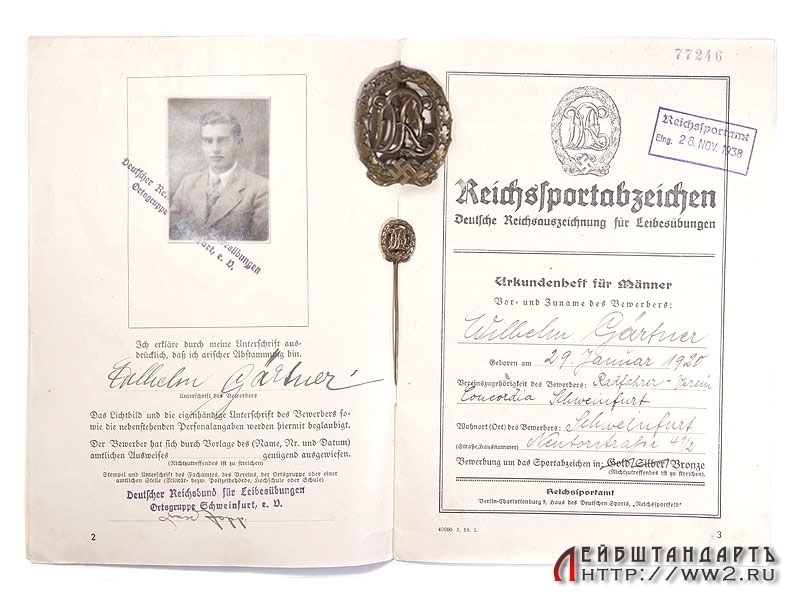 Deutscher Re
Ortsgruppe
eibesübungen
furt, e. V.
Ich erkläre durch meine Unterschrift aus-
drücklich, daß ich arischer Abstammung bin.
Wilhelm Gärtner
Unterschrift des Bewerbers
Das Lichtbild und die eigenhändige Unterschrift des Bewerbers so-
wie die nebenstehenden Personalangaben werden hiermit beglaubigt.
Der Bewerber hat sich durch Vorlage des (Name, Nr. und Datum)
amtlichen Ausweises genügend ausgewiesen.
(Nichtzutreffendes ist zu streichen)
Stempel und Unterschrift des Fachamtes, des Vereins, der Ortsgruppe oder einer
amtlichen Stelle (Militär- bezw. Polizeibehörde, Hochschule oder Schule)
Deutscher Reichsbund für Leibesübungen
Ortsgruppe Schweinfurt, e. V.
2
77246
Reichssportamt
Eing. 28. NOV. 1938
Reichssportabzeichen
Deutsche Reichsauszeichnung für Leibesübungen
Urkundenheft für Männer
Vor- und Zuname des Bewerbers:
Wilhelm Gärtner
Geboren am 29 Januar 1920
Vereinszugehörigkeit des Bewerbers: Radfahrer-Verein
Concordia Schweinfurt
Wohnort (Ort) des Bewerbers: Schweinfurt
(Straße, Hausnummer) Neutorstraße 4 1/2
Bewerbung um das Sportabzeichen in: Gold/Silber/Bronze
(Nichtzutreffendes ist zu streichen).
Reichssportamt
Berlin-Charlottenburg 9, Haus des Deutschen Sports, „Reichssportfeld"
3
ЛЕЙБШТАНДАРТЪ
HTTP://WW2.RU